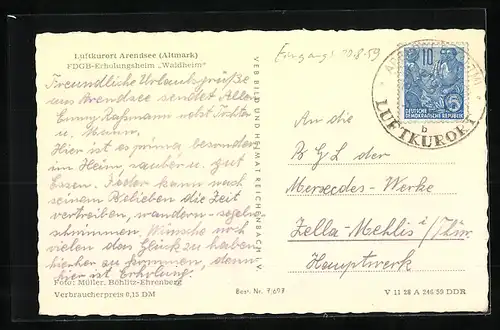 Luftkurort Arendsee (Altmark)
FDGB-Erholungsheim „Waldheim"
Freundliche Urlaubsgrüße
aus Arendsee sendet Allen
nebst Tochter
u.
Hier ist es prima besonders
im Heim, sauber u. gut
Essen. Jeder kann nach
seinem Belieben die Zeit
vertreiben, wandern - segeln
schwimmen, Wünsche noch
vielen das Glück zu haben
hierher zu kommen, denn
hier ist Erholung.
Foto: Müller, Böhlitz-Ehrenberg
Verbraucherpreis 0,15 DM
VEB BILD UND HEIMAT REICHENBACH i. V.
Best. Nr. 7/697
Eingang: 8.59
10
DEUTSCHE
DEMOKRATISCHE REPUBLIK
5
b
LUFTKURORT
An die
BGL der
Mersedes-Werke
Zella-Mehlis i/Thür.
Hauptwerk
V 11 28 A 246/59 DDR